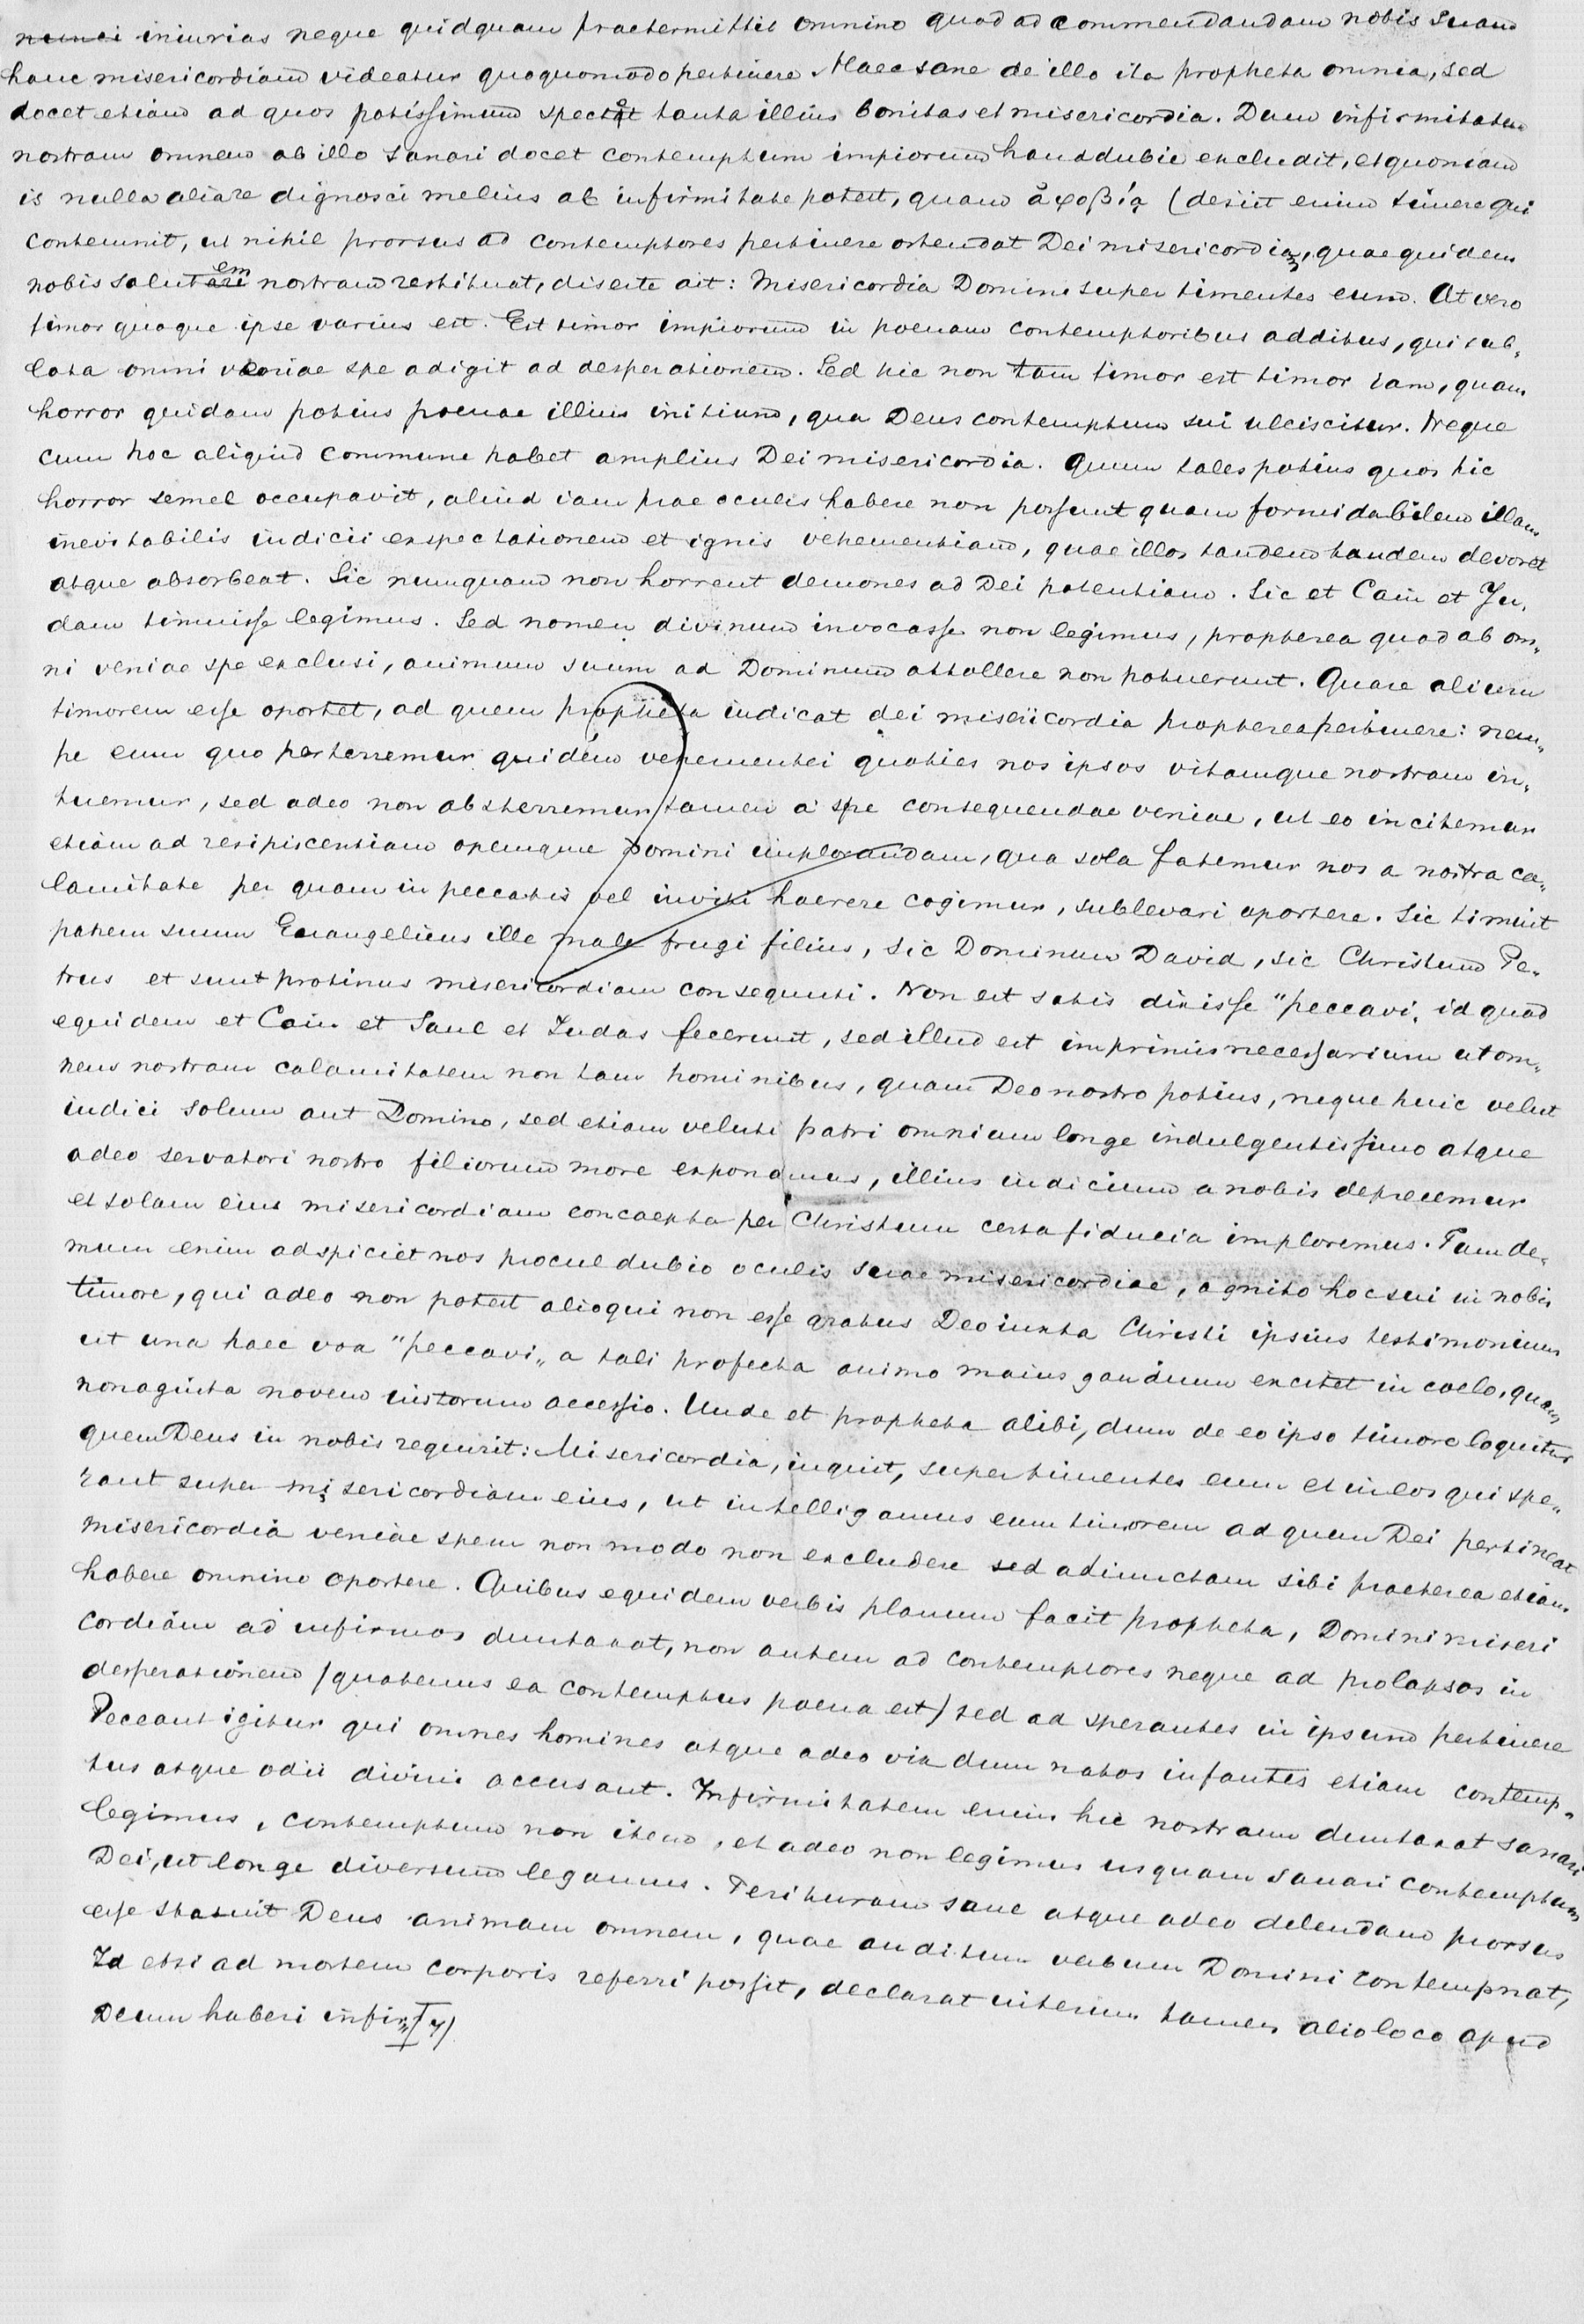 iniurias neque quidquam praetermittit omnino quod ad commendandam nobis suam
hanc misericordiam videatur quoquomodo pertinere. Haec sane de illo ita propheta omnia, sed
docet etiam ad quos potissimum spectat tanta illius bonitas et misericordia. Dum infirmitatem
nostram omnem ab illo sanari docet contemptum impiorum haud dubie excludit, et quoniam
is nulla alia re dignosci melius ab infirmitate potest, quam ἀφοβίᾳ (desiit enim timere qui
contemnit, ut nihil prorsus ad contemptores pertinere ostendat Dei misericordiam, quae quidem
nobis salutem nostram restituat, diserte ait: Misericordia Domini super timentes eum. At vero
timor quoque ipse varius est. Est timor impiorum in poenam contemptoribus additus, qui sub„
lata omni veniae spe adigit ad desperationem. Sed hic non tam timor est timor iam, quam
horror quidam potius poenae illius initium, qua Deus contemptum sui ulciscitur. Neque
cum hoc aliquid commune habet amplius Dei misericordia. Quum tales potius quos hic
horror semel occupavit, aliud iam prae oculis habere non possunt quam formidabilem illam
inevitabilis iudicii exspectationem et ignis vehementiam, quae illos tandem tandem devoret
atque absorbeat. Sic nunquam non horrent demones ad Dei potentiam. Sic et Cain et Ju„
dam timuisse legimus. Sed nomen divinum invocasse non legimus, propterea quod ab om„
ni veniae spe exclusi, animum suum ad Dominum attollere non potuerunt. Quare alium
timorem esse oportet, ad quem propheta indicat dei misericordia propterea pertinere: nem„
pe eum quo perterremur quidem vehementei quoties nos ipsos vitamque nostram in„
tuemur, sed adeo non absterremur tamen a spe consequendae veniae, ut eo incitemur
etiam ad resipiscentiam opemque Domini implorandam, qua sola fatemur nos a nostra ca„
lamitate per quam in peccatis vel inviti haerere cogimur, sublevari oportere. Sic timuit
patrem suum Euangelicus ille male frugi filius, sic Dominum David, sic Christum Pe„
trus et sunt protinus misericordiam consequuti. Non est satis dixisse "peccavi„ id quod
equidem et Cain et Saul et Judas fecerunt, sed illud est imprimis necessarium ut om„
nem nostram calamitatem non tam hominibus, quam Deo nostro potius, neque huic velut
iudici solum aut Domino, sed etiam veluti patri omnium longe indulgentissimo atque
adeo servatori nostro filiorum more exponamus, illius iudicium a nobis deprecemur
et solam eius misericordiam concaepta per Christum certa fiducia imploremus. Tum de„
mum enim adspiciet nos procul dubio oculis suae misericordiae, agnito hoc sui in nobis
timore, qui adeo non potest alioqui non esse gratus Deo iuxta Christi ipsius testimonium
ut una haec vox "peccavi„ a tali profecta animo maius gaudium excitet in coelo, quam
nonaginta novem iustorum accessio. Unde et propheta alibi, dum de eo ipso timore loquitur
quem Deus in nobis requirit: Misericordia, inquit, super timentes eum et in eos qui spe„
rant super misericordiam eius, ut intelligamus eum timorem ad quem Dei pertineat
misericordia veniae spem non modo non excludere sed adiunctam sibi praeterea etiam
habere omnino oportere. Quibus equidem verbis planum facit propheta, Domini miseri
cordiam ad infirmos duntaxat, non autem ad contemptores neque ad prolapsos in
desperationem (quatenus ea contemptus poena est) sed ad sperantes in ipsum pertinere
Peccant igitur qui omnes homines atque adeo vix dum natos infantes etiam contemp„
tus atque odii divini accusant. Infirmitatem enim hic nostram duntaxat sanari
legimus, contemptum non item, et adeo non legimus usquam sanari contemptum
Dei, ut longe diversum legamus. Perituram sane atque adeo delendam prorsus
esse statuit Deus animam omnem, quae auditum verbum Domini contempnat,
Id etsi ad mortem corporis referri possit, declarat interim tamen alio loco apud
Deum haberi infir„